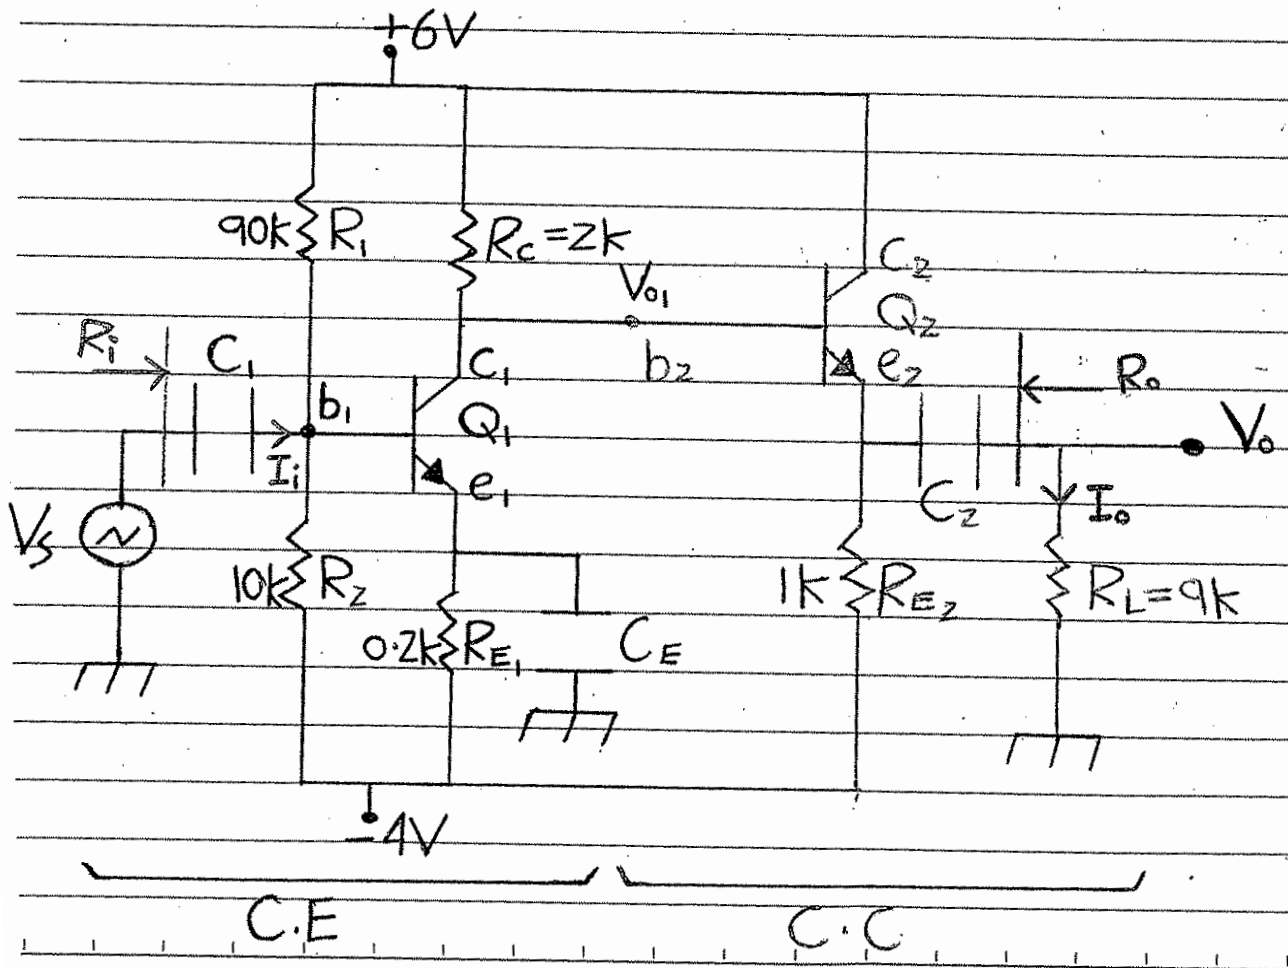 +6V
90k R1 Rc=2k
C2
Vo1
Q2
Ri C1 C1 b2 e2 Ro
b1 Q1 Vo
Ii e1 C2 Io
Vs
10k R2 1k RE2 RL=9k
0.2k RE1 CE
-4V
C.E C.C